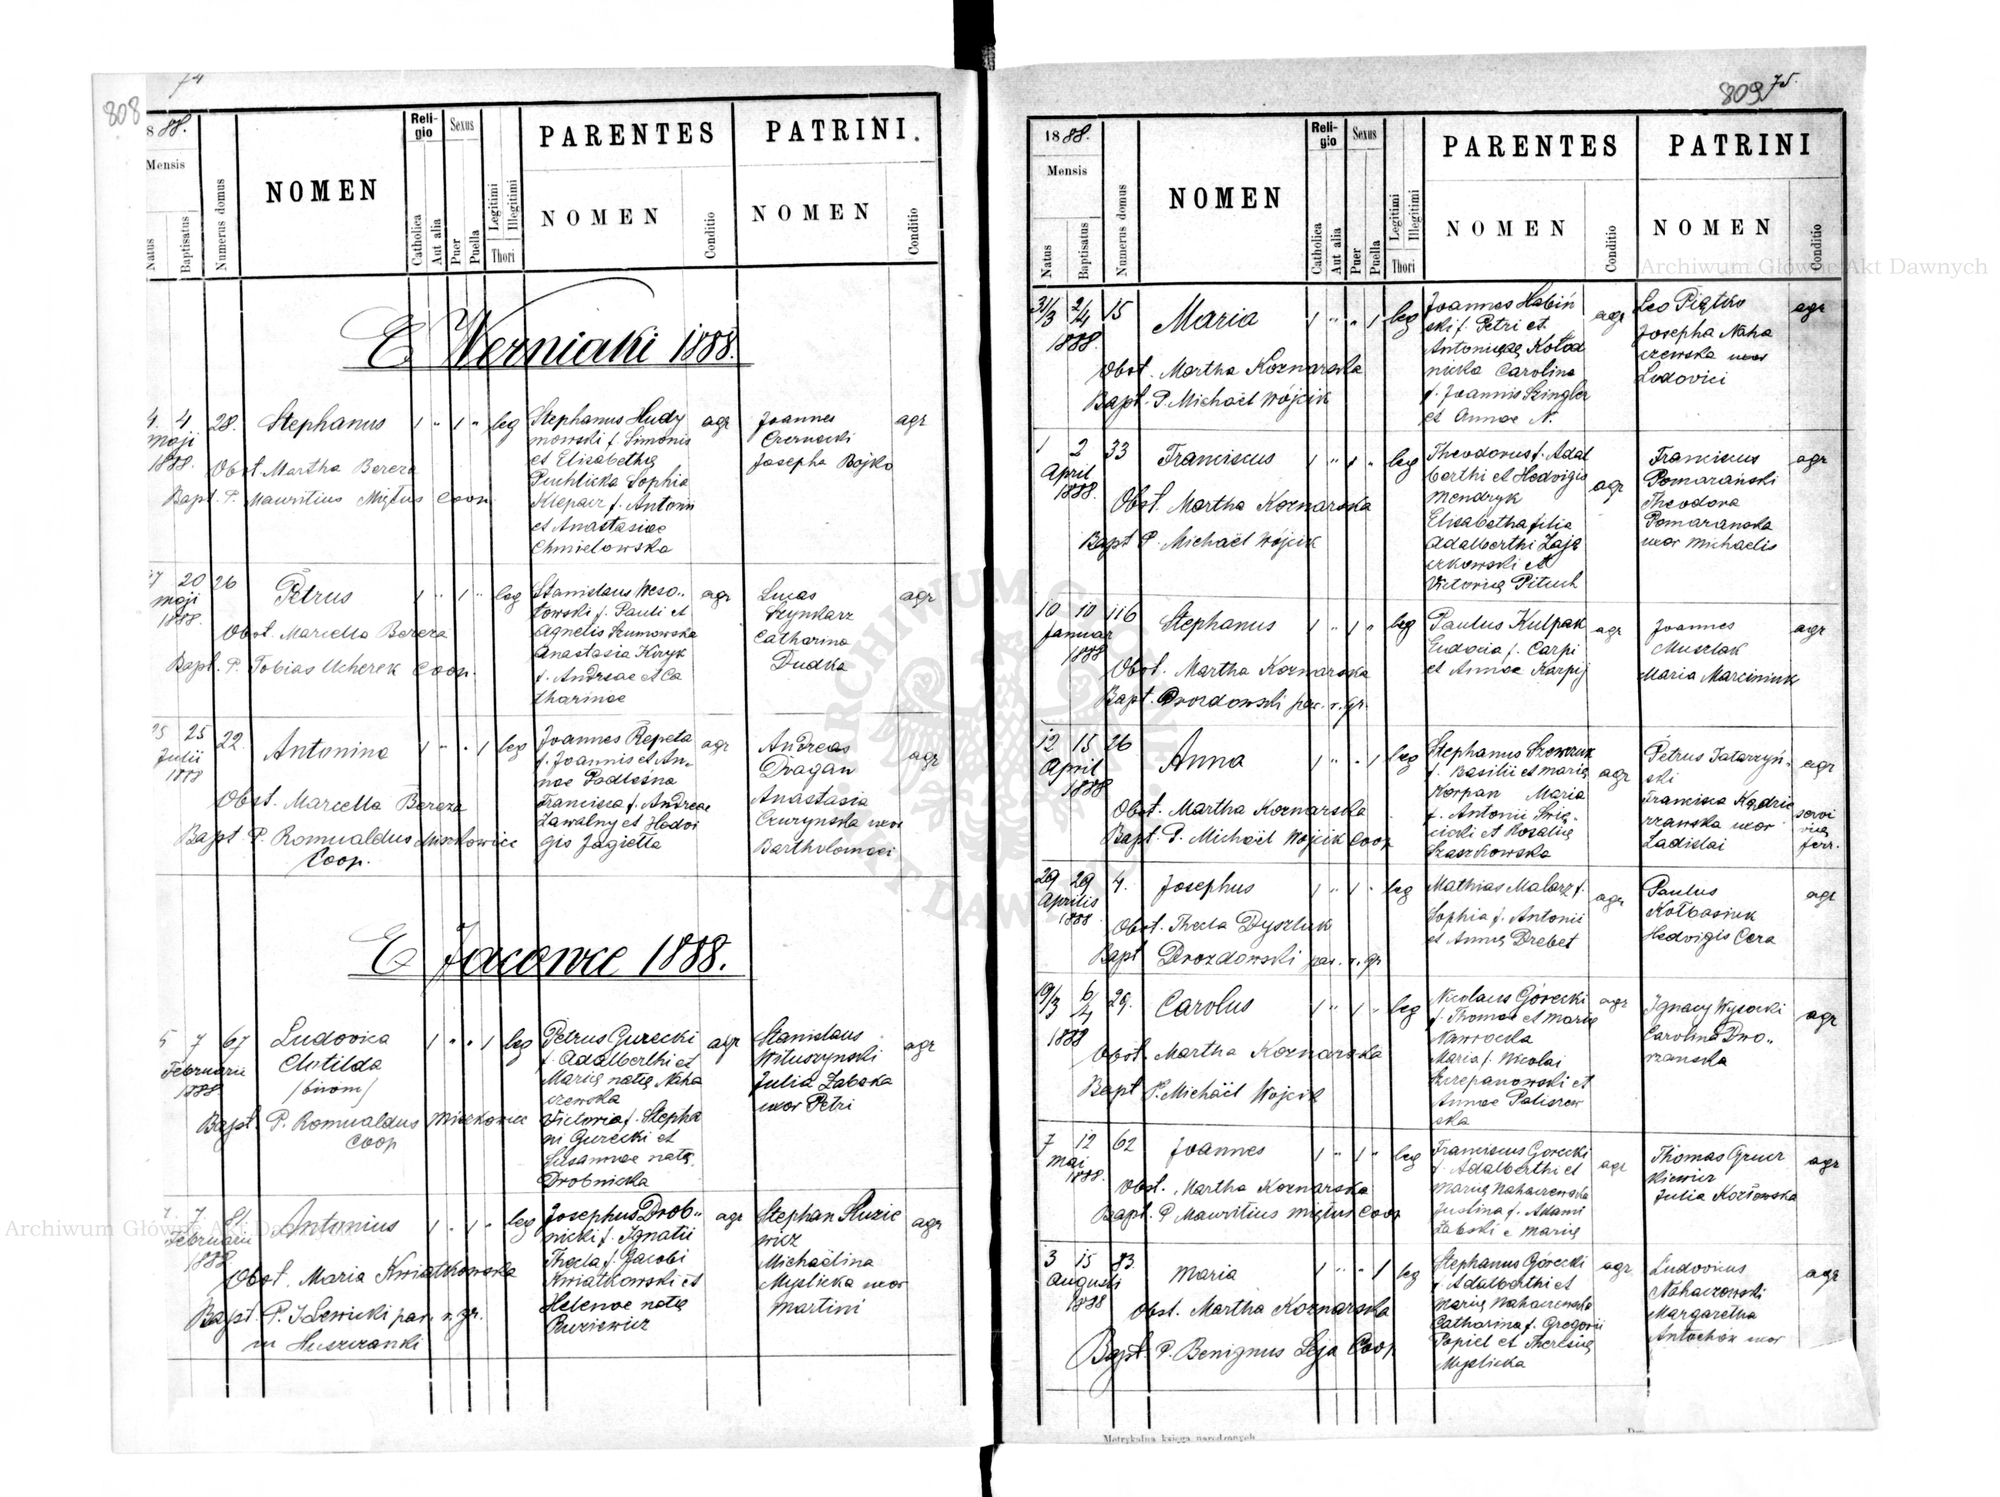 808
74
1888.
Mensis
Natus
Baptisatus
Numerus domus
NOMEN
Reli-
gio
Catholica
Aut alia
Sexus
Puer
Puella
Legitimi
Illegitimi
Thori
PARENTES
NOMEN
Conditio
PATRINI.
NOMEN
Conditio
E Werniaki 1888.
4. 4 28. Stephanus 1 " 1 " leg Stephanus Hudy agr Joannes agr
Maji mowski f. Simonis Czernecki
1888. et Elisabethę Josepha Bojko
Obst. Martha Bereza
Puchlicka Sophia
Bapt. P. Mauritius Miętus Coop.
Klepacz f. Antonii
et Anastasiae
Chmielowska
17 20 26 Petrus 1 " 1 " leg Stanislaus Weso.. agr Lucas agr
Maji łowski f. Pauli et Szynkarz
1888. Agnetis Szumowska Catharina
Obst. Marcella Bereza
Anastasia Kiryk Dudka
Bapt. P. Tobias Ucherek Coop.
f. Andreae et Ca
tharinae
25 25 22. Antonina 1 " " 1 leg Joannes Repeta agr Andreas agr
Julii f. Joannis et An- Dragan
1888 nae Podleśna Anastasia
Obst. Marcella Bereza
Francisca f. Andreae Czuryńska uxor
Bapt P. Romualdus Miszkowicz
Zawalny et Hedvi Bartholomaei
Coop.
gis Jagiełła
E Jacowce 1888.
5 7 67 Ludovica 1 " " 1 leg Petrus Gurecki agr Stanislaus agr
Februarii Clotilda f. Adalberthi et Wituszynski
1888 /binom/ Marię natę Naha Julia Zabska
czewska uxor Petri
Bapt. P. Romualdus Miszkowicz
Coop
Victoria f. Stepha
ni Gurecki et
Susannae natę
Drobnicka
7 Antonius 1 " 1 " leg Josephus Drob.. agr Stephan Kuzie agr
Februarii nicki f. Ignatii wicz
1888 Thecla f. Jacobi Michaëlina
Obst. Maria Kwiatkowska
Kwiatkowski et Myslicka uxor
Helenae natę Martini
Bapt. P. Lewicki par. r. gr.
in Huszczanki
809
75.
1888.
Mensis
Natus
Baptisatus
Numerus domus
NOMEN
Reli-
gio
Catholica
Aut alia
Sexus
Puer
Puella
Legitimi
Illegitimi
Thori
PARENTES
NOMEN
Conditio
PATRINI
NOMEN
Conditio
31/3 2/4 15 Maria 1 " " 1 leg Joannes Habiń agr Leo Piątko agr
1888. ski f. Petri et Josepha Naha
Antoniegę Kołod czewska uxor
Obst. Martha Koznarska
nicka Carolina Ludovici
Bapt. P. Michaël Wójcik
f. Joannis Szingler
et Annae N.
1 2 33 Franciscus 1 " 1 " leg Theodorus f. Adal agr Franciscus agr
April berthi et Hedvigis Pomarański
1888. Mendryk Theodora
Obst. Martha Koznarska
Elisabetha filia Pomarańska
Bapt P. Michaël Wójcik
Adalberthi Zają uxor Michaelis
czkowski et
Victorię Pituch
10 10 116 Stephanus 1 " 1 " leg Paulus Kulpak agr Joannes agr
Januar Eudocia f. Carpi Muszlak
1888 et Annae Karpij Maria Marciniuk
Obst. Martha Koznarska
Bapt. Drozdowski par. r. gr.
12 15 26 Anna 1 " " 1 leg Stephanus Szewczuk agr Petrus Tatarzyń- agr
April f. Basilii et Marię ski
1888 Korpan Maria Francisca Kędrie servi
Obst. Martha Koznarska
f. Antonii rzawska uxor
Bapt. P. Michaël Wójcik Coop
et Rosalię Ladislai ferr.
Szaszkowska
29 29 4. Josephus 1 " 1 " leg Mathias Malarz f. agr Paulus agr
Aprilis Sophia f. Antonii Kołbasiuk
1888 et Annę Drebet Hedvigis Cera
Obst. Thecla Dyszluk
Bapt Drozdowski par. r. gr
19/3 6/4 29. Carolus 1 " 1 " leg Nicolaus Górecki agr Ignacy Wysocki agr
1888 f. Thomae et Marię Carolina Dwo..
Nawrocka rzanska
Obst. Martha Koznarska
Maria f. Nicolai
Bapt P. Michaël Wojcik
Szczepanowski et
Annae Paliszew
ska
7 12 62 Joannes 1 " 1 " leg Franciscus Gorecki agr Thomas Gruer agr
Mai f. Adalberthi et kiewicz
1888. Marię Nahaczewska Julia Kozłowska
Obst. Martha Koznarska
Justina f. Adami
Bapt. P Mauritius Miętus Coop
Zabski e Marię
3 15 83. Maria 1 " " 1 leg Stephanus Górecki agr Ludovicus agr
Augusti f. Adalberthi et Nahaczowski
1888 Marię Nahaczewska Margaretha
Obst. Martha Koznarska
Catharina f. Gregorii Antochow uxor
Bapt. P. Benignus Leja Coop
Popiel et Theresię
Myslicka
Metrykalna księga narodzonych
Archiwum Główne Akt Dawnych
Archiwum Główne Akt Dawnych
ARCHIWUM GŁÓWNE AKT DAWNYCH